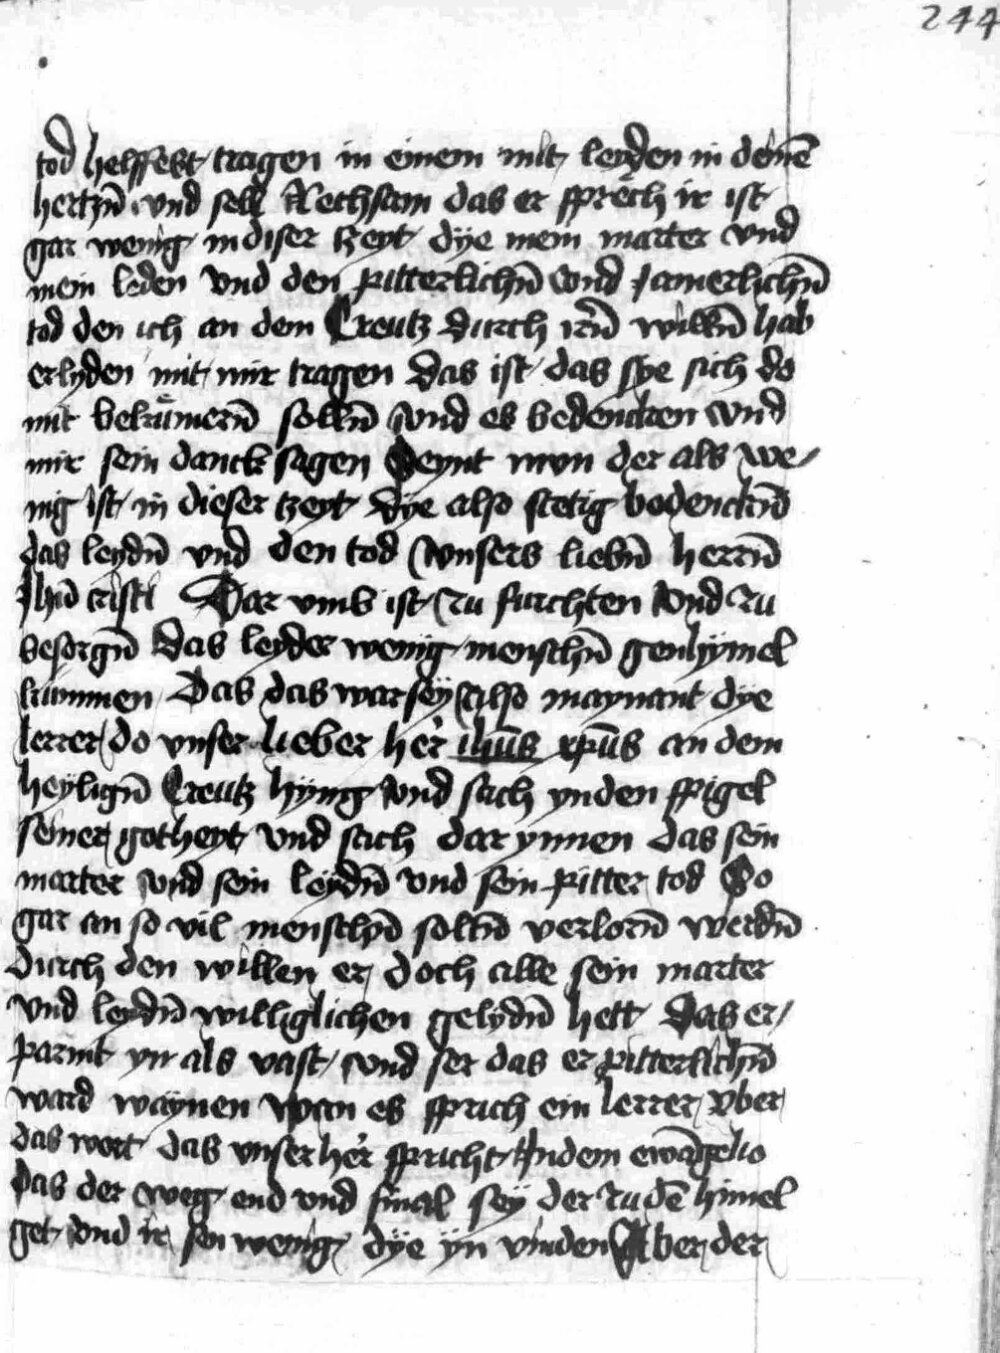 244
tod helffest tragen in einem mit leyden in deinē
hertzn̄ vnd sell Rechsam das er sprech ir ist
gar wenig in diser tzeyt dÿe mein marter vnd
mein leden vnd den pitterlichn̄ vnd Jamerlichn̄
tod den ich an dem Creutz durch irn̄ willn̄ hab
erlyden mit mir tragen das ist das sye sich do
mit bekümern̄ solln̄ vnd es bedencken vnd
mir sein danck sagen Seynt mon der als we-
nig ist in dieser tzeyt dÿe also stetig bedenckn̄d
das leydn̄ vnd den tod vnsers liebn̄ herrn̄
Jhū cristi Dar vmb ist zu furchten vnd zu
besorgn̄ das leyder wenig menschn̄ gen hÿmel
kummen Das das war seÿ also maynant dÿe
lerrer do vnser lieber her ihūs xpūs an dem
heylign̄ Creutz hÿng vnd sach yn den spigel
seiner gotheyt vnd sach dar ynnen das sein
marter vnd sein leydn̄ vnd sein pitter tod So
gar an so vil menschn̄ solln̄ verlorn̄ werdn̄
durch den willen er doch alle sein marter
vnd leydn̄ williglichen gelydn̄ hett Das er-
parmt yn als vast vnd ser das er pitterlichn̄
ward waynen wan es sprich ein lerrer vber
das wort das vnser her spricht Jn dem ewāgelio
Das der weg end vnd smal seÿ der zu dē himel
get vnd ir sen wenig dÿe yn vinden Aber der